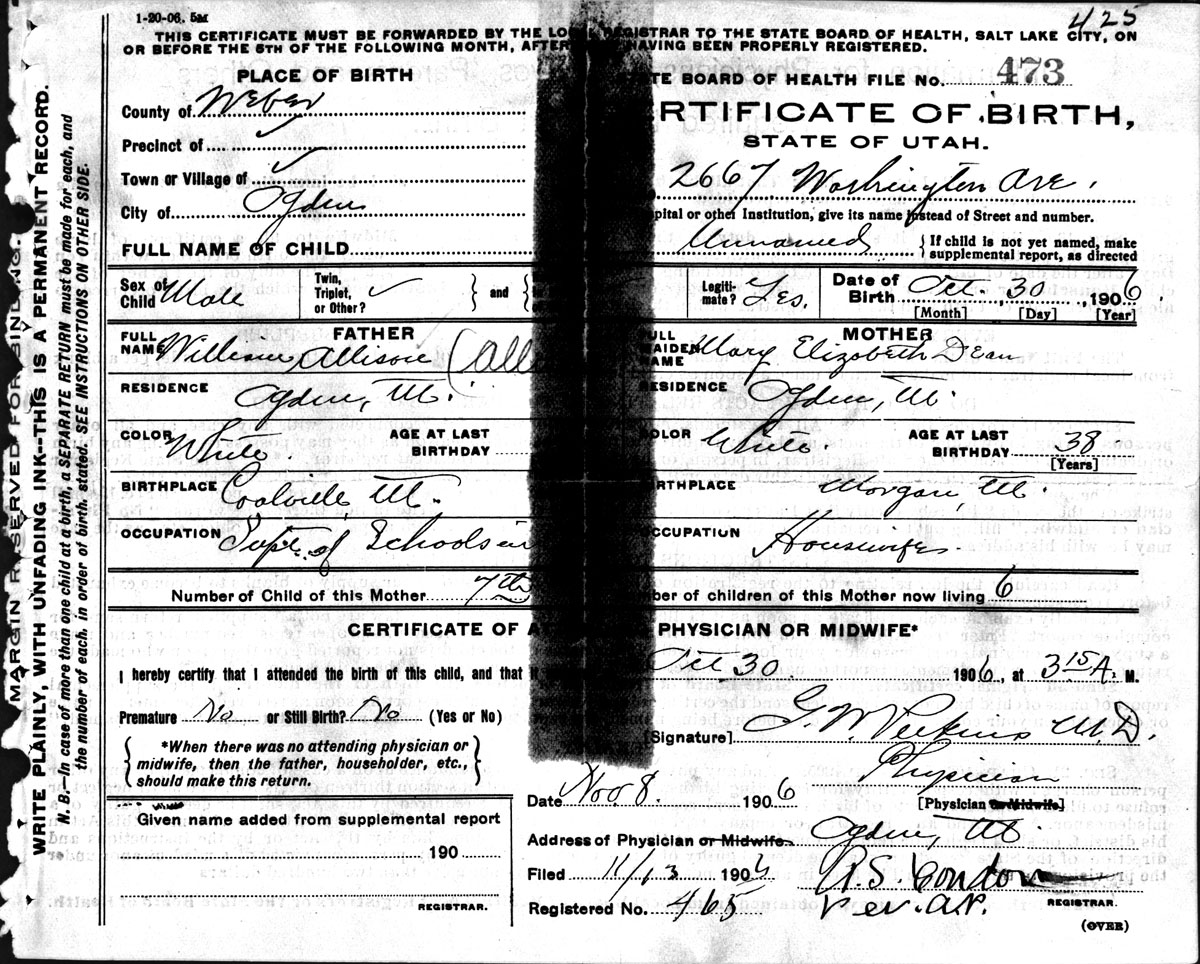 1-20-06. 5M
425
THIS CERTIFICATE MUST BE FORWARDED BY THE LOCAL REGISTRAR TO THE STATE BOARD OF HEALTH, SALT LAKE CITY, ON
OR BEFORE THE 5TH OF THE FOLLOWING MONTH, AFTER HAVING BEEN PROPERLY REGISTERED.
PLACE OF BIRTH
TE BOARD OF HEALTH FILE No. 473
County of Weber
ERTIFICATE OF BIRTH,
Precinct of ✓
STATE OF UTAH.
Town or Village of ✓
2667 Washington Ave.
City of Ogden
pital or other Institution, give its name instead of Street and number.
FULL NAME OF CHILD Unnamed { If child is not yet named, make
supplemental report, as directed
Sex of Child Male
Twin, Triplet, or Other? ✓ } and {
Legiti-mate? Yes.
Date of Birth Oct. 30, 1906
[Month] [Day] [Year]
FATHER
FULL NAME William Allison (All
MOTHER
FULL MAIDEN NAME Mary Elizabeth Dean
RESIDENCE Ogden, Ut.
RESIDENCE Ogden, Ut.
COLOR White.
AGE AT LAST BIRTHDAY
COLOR White
AGE AT LAST BIRTHDAY 38
[Years]
BIRTHPLACE Coalville Ut.
BIRTHPLACE Morgan, Ut.
OCCUPATION Supt. of Schools in
OCCUPATION Housewife
Number of Child of this Mother 7th
ber of children of this Mother now living 6
CERTIFICATE OF A PHYSICIAN OR MIDWIFE*
I hereby certify that I attended the birth of this child, and that Oct 30 1906, at 3 15 A. M.
Premature No or Still Birth? No (Yes or No)
[Signature] Perkins M.D.
{ *When there was no attending physician or
midwife, then the father, householder, etc.,
should make this return. }
Physician
[Physician or Midwife]
Date Nov 8. 1906
Given name added from supplemental report
190
REGISTRAR.
Address of Physician or Midwife. Ogden, Ut.
Filed 11/13 1906
R.S. Condon
REGISTRAR.
Registered No. 465
(OVER)
MARGIN RESERVED FOR BINDING.
WRITE PLAINLY, WITH UNFADING INK—THIS IS A PERMANENT RECORD.
N. B.—In case of more than one child at a birth, a SEPARATE RETURN must be made for each, and
the number of each, in order of birth, stated. SEE INSTRUCTIONS ON OTHER SIDE.